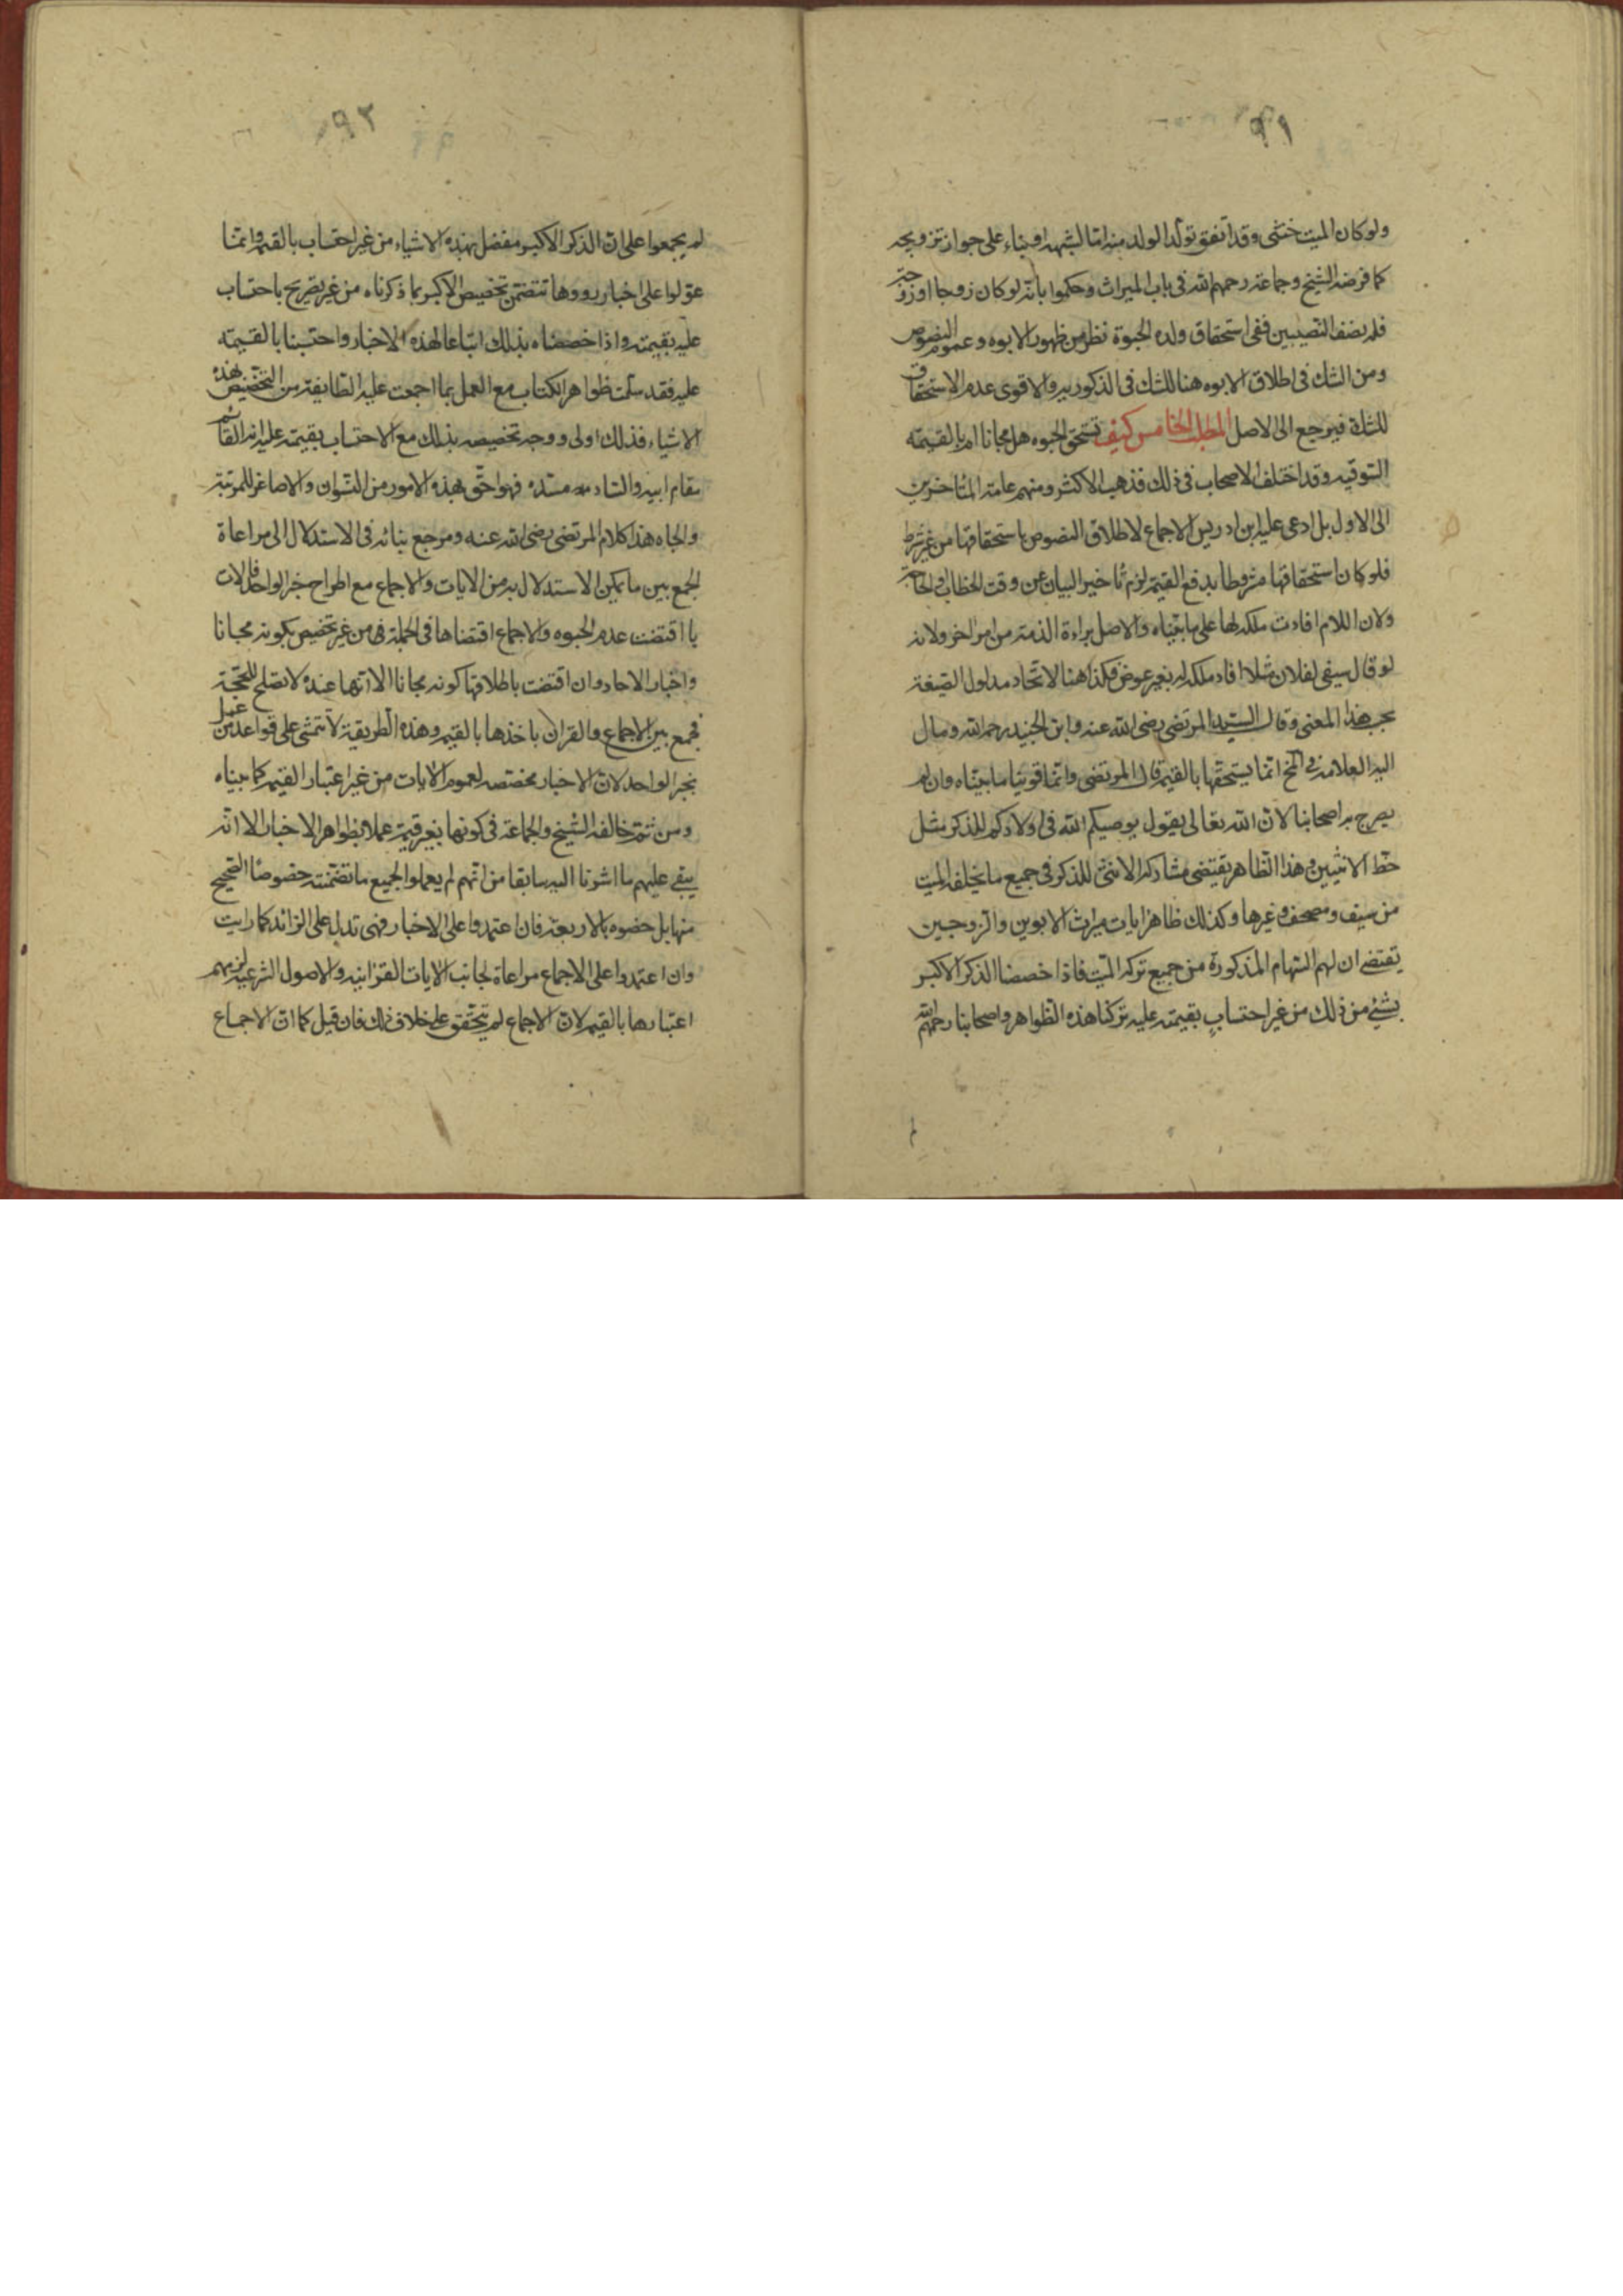 ٩١
ولو كان الميت خنثى وقد اتفق تولد الولد منه اما لشبهه او بناء على جواز تزويجه
كما فرضه الشيخ وجماعة رحمهم الله فى باب الميراث وحكموا بانه لو كان زوجا او زوجة
فله نصف النصيبين ففى استحقاق ولده الحبوة نظر من ظهور الابوه وعموم النصوص
ومن الشك فى اطلاق الابوه هنا للشك فى الذكوريه والاقوى عدم الاستحقاق
للشك فيرجع الى الاصل المطلب الخامس كيف تستحق الحبوه هل مجانا ام بالقيمة
السوقيه وقد اختلف الاصحاب فى ذلك فذهب الاكثر ومنهم عامة المتاخرين
الى الاول بل ادعى عليه ابن ادريس الاجماع لاطلاق النصوص باستحقاقها من غير شرط
فلو كان استحقاقها مشروطا بدفع القيمة لزم تاخير البيان عن وقت الخطاب والحاجة
ولان اللام افادت ملكه لها على ما بيناه والاصل براءة الذمة من امر اخر ولانه
لو قال سيفى لفلان مثلا افاد ملكه له بغير عوض فكذا هنا لاتحاد مدلول الصيغة
بحسب هذا المعنى وقال السيد المرتضى رضى الله عنه وابن الجنيد رحمه الله ومال
اليه العلامة فى المخ انما يستحقها بالقيمة قال المرتضى وانما قوينا ما بيناه وان لم
يصرح به اصحابنا لان الله تعالى يقول يوصيكم الله فى اولادكم للذكر مثل
حظ الانثيين وهذا الظاهر يقتضى مشاركة الانثى للذكر فى جميع ما يخلفه الميت
من سيف ومصحف وغيرها وكذلك ظاهر ايات ميراث الابوين والزوجين
يقتضى ان لهم السهام المذكورة من جميع تركه الميت فاذا خصصنا الذكر الاكبر
بشئ من ذلك من غير احتساب بقيمته عليه تركنا هذه الظواهر واصحابنا رحمهم الله
٩٢
لم يجمعوا على ان الذكر الاكبر مفضل بهذه الاشياء من غير احتساب بالقيمه وانما
عولوا على اخبار رووها تتضمن تخصيص الاكبر بما ذكرناه من غير تصريح باحتساب
عليه بقيمته واذا خصصناه بذلك اتباعا لهذه الاخبار واحتسبنا بالقيمة
عليه فقد سلمت ظواهر الكتاب مع العمل بما اجمعت عليه الطايفة من التخصيص بهذه
الاشياء فذلك اولى ووجه تخصيصه بذلك مع الاحتساب بقيمته عليه انه القائم
مقام ابيه والساد مسده فهو احق بهذه الامور من النسوان والاصاغر للمرتبة
والجاه هذا كلام المرتضى رضى الله عنه ومرجع بنائه فى الاستدلال الى مراعاة
الجمع بين ما يمكن الاستدلال به من الايات والاجماع مع اطراح خبر الواحد فالايات
اقتضت عدم الحبوه والاجماع اقتضاها فى الجملة من غير تخصيص بكونه مجانا
واخبار الاحاد وان اقتضت باطلاقها كونه مجانا الا انها عنده لا تصلح للحجة
فجمع بين الاجماع والقران باخذها بالقيمه وهذه الطريقية لا تتمشى على قواعد من عمل
بخبر الواحد لان الاخبار مخصصه لعموم الايات من غير اعتبار القيمه كما بيناه
ومن ثم خالفه الشيخ والجماعة فى كونها بغير قيمة عملا بظواهر الاخبار الا انه
يبقى عليهم ما اشرنا اليه سابقا من انهم لم يعملوا بجميع ما تضمنته خصوصا الصحيح
منها بل خصوه بالاربعة فان اعتمدوا على الاخبار فهى تدل على الزائد كما رايت
وان اعتمدوا على الاجماع مراعاة لجانب الايات القرانيه والاصول الشرعيه لزمهم
اعتبارها بالقيمه لان الاجماع لم يتحقق على خلاف ذلك فان قيل كما ان الاجماع